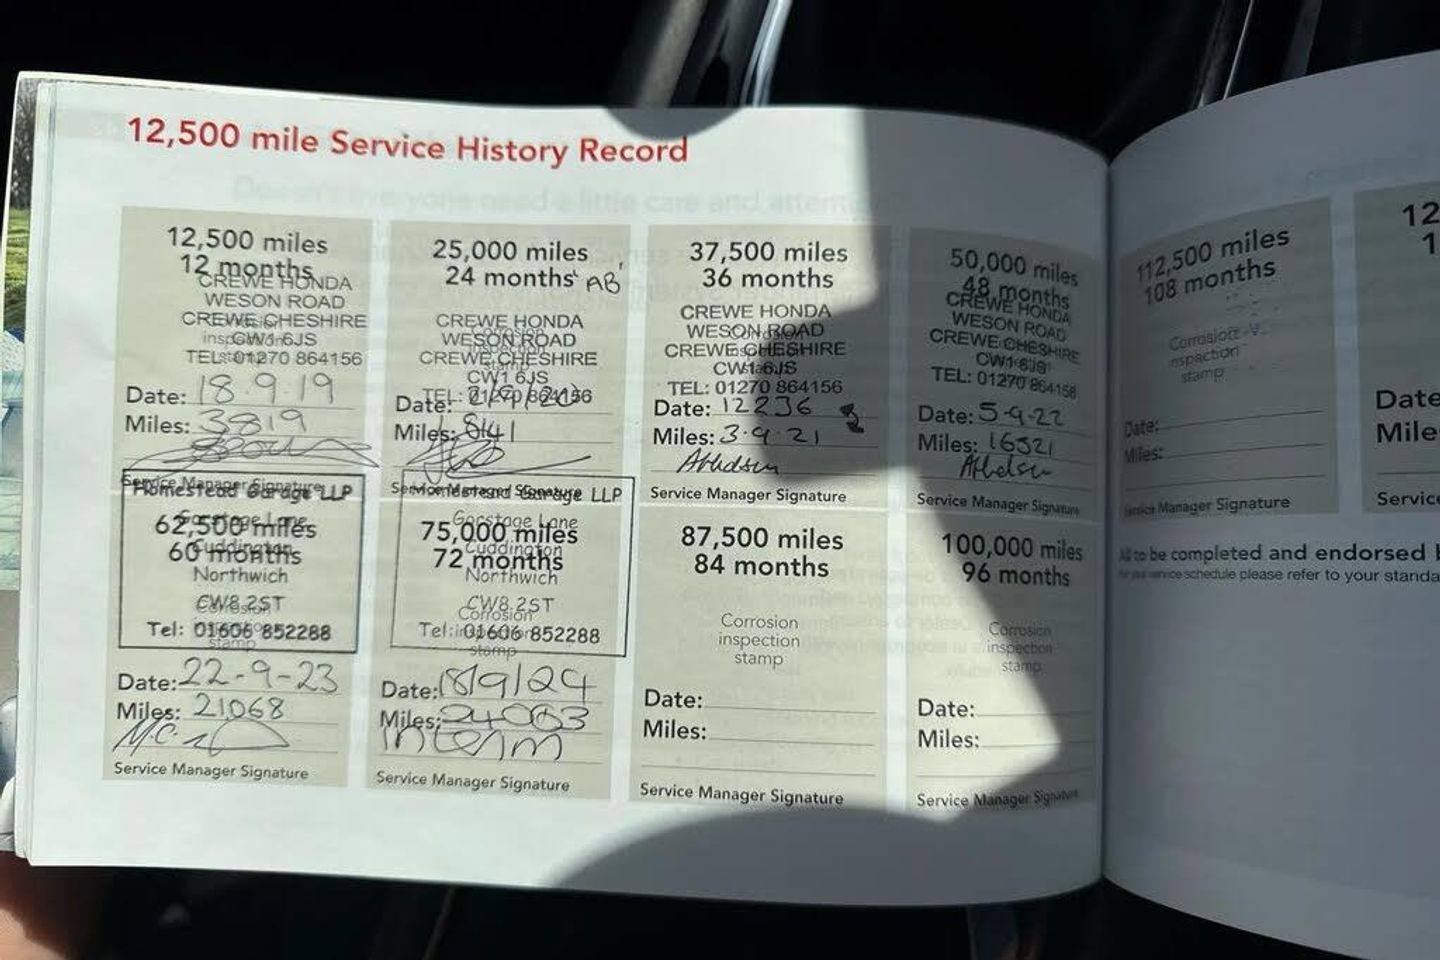 12,500 mile Service History Record
12,500 miles
12 months
CREWE HONDA
WESON ROAD
CREWE CHESHIRE
CW1 6JS
TEL: 01270 864156
Date: 18.9.19
Miles: 3819
Service Manager Signature
25,000 miles
24 months AB
CREWE HONDA
WESON ROAD
CREWE CHESHIRE
CW1 6JS
TEL: 01270 864156
Date:
Miles: 8141
Service Manager Signature
37,500 miles
36 months
CREWE HONDA
WESON ROAD
CREWE CHESHIRE
CW1 6JS
TEL: 01270 864156
Date: 12236
Miles: 3.9.21
Service Manager Signature
50,000 miles
48 months
CREWE HONDA
WESON ROAD
CREWE CHESHIRE
CW1 6JS
TEL: 01270 864156
Date: 5-9-22
Miles: 16321
Service Manager Signature
Homestead Garage LLP
62,500 miles
Gorstage Lane
60 months
Cuddington
Northwich
CW8 2ST
Corrosion
Tel: 01606 852288
stamp
Date: 22-9-23
Miles: 21068
Service Manager Signature
Homestead Garage LLP
Gorstage Lane
75,000 miles
Cuddington
72 months
Northwich
CW8 2ST
Corrosion
inspection
Tel: 01606 852288
stamp
Date: 18/9/24
Miles: 24063
Interim
Service Manager Signature
87,500 miles
84 months
Corrosion
inspection
stamp
Date:
Miles:
Service Manager Signature
100,000 miles
96 months
Corrosion
inspection
stamp
Date:
Miles:
Service Manager Signature
112,500 miles
108 months
Corrosion
inspection
stamp
Date:
Miles:
Service Manager Signature
12
1
Date
Mile
Service
All to be completed and endorsed
For your service schedule please refer to your standa